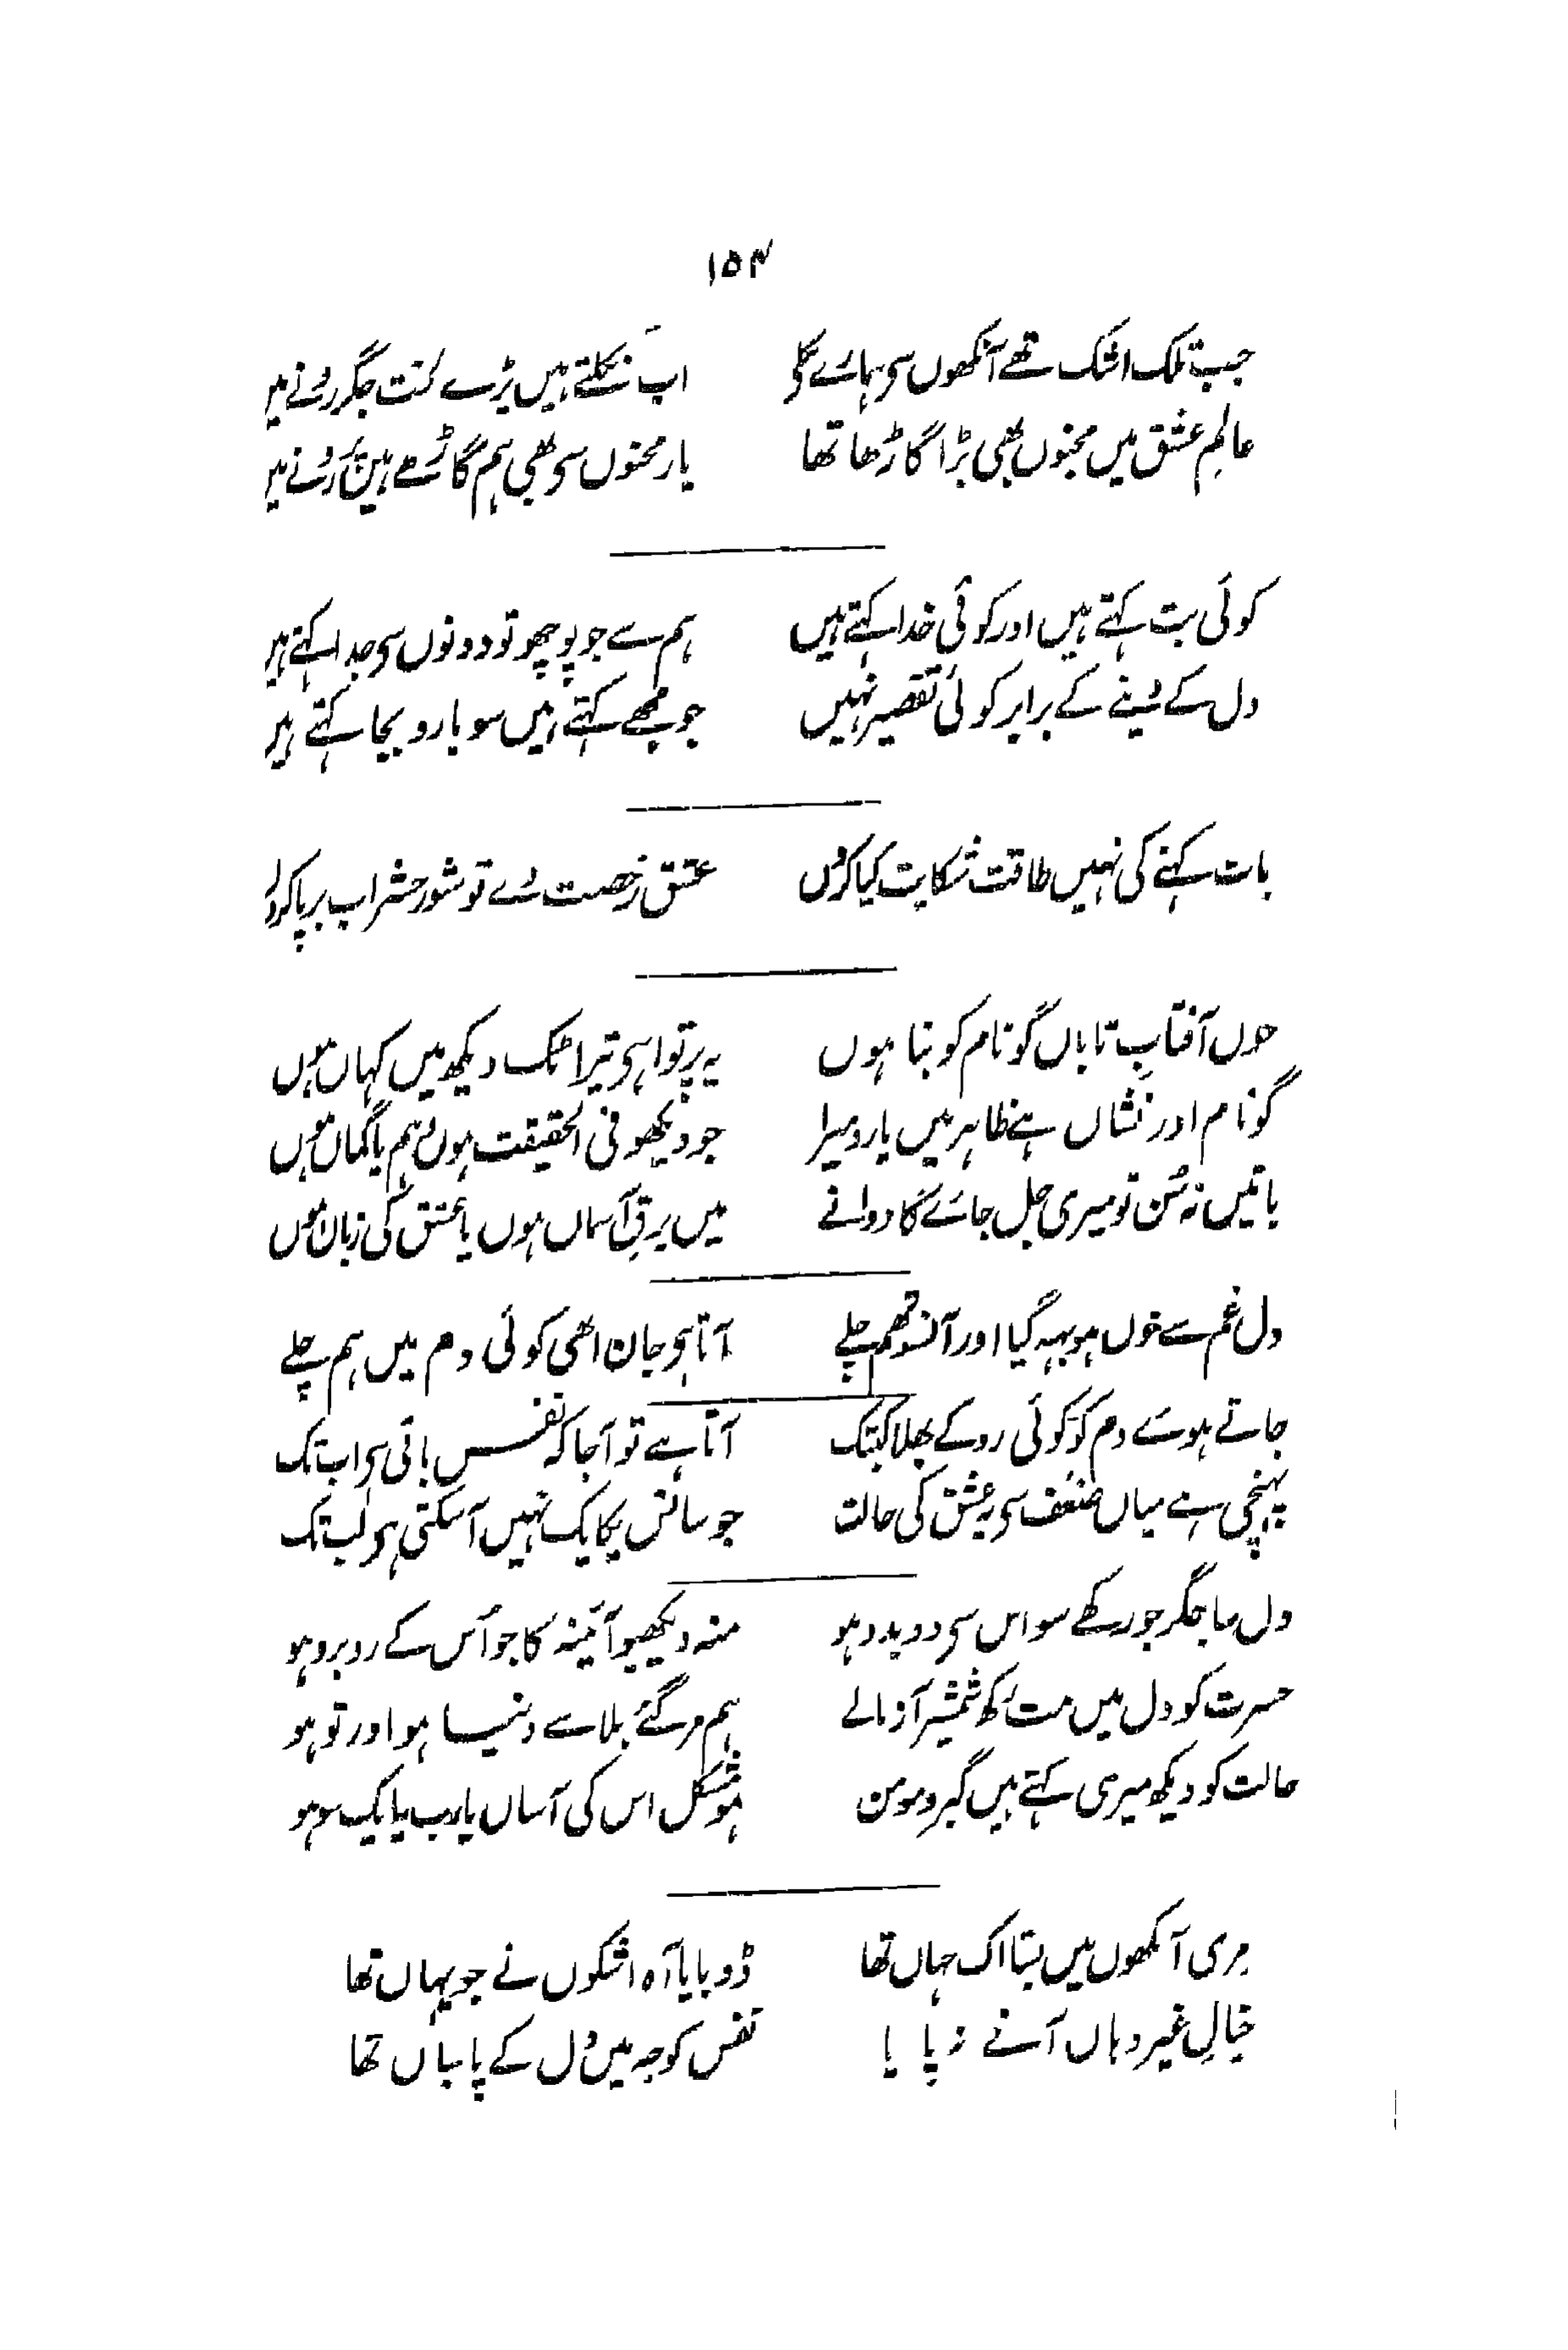 ۱۵۴
جب تلک اشک تھے آنکھوں سی بہائے گئی اب نکلتے ہیں پڑے لخت جگر رونے میں
عالمِ عشق میں مجنوں بھی بڑا گاڑھا تھا یار مجنوں سی بھی ہم گاڑے ہیں رونے میں
کوئی بت کہتے ہیں اور کوئی خدا کہتے ہیں ہم سے جو پوچھو تو دونوں سی جدا کہتے ہیں
دل کے دینے کے برابر کوئی تقصیر نہیں جو مجھے کہتے ہیں سو یارو بجا کہتے ہیں
بات کہنے کی نہیں طاقت شکایت کیا کروں عشق رخصت دے تو شور حشر اب برپا کروں
جوں آفتابِ تاباں گو نام کو بنا ہوں یہ پرتوا ہی تیرا ٹک دیکھ میں کہاں ہوں
گو نام اور نشاں ہے ظاہر میں یارو میرا جو دیکھو فی الحقیقت ہوں وہم یا گماں ہوں
باتیں نہ سُن تو میری جل جائے گا دوانے میں برقِ آسماں ہوں یا عشق کی زبان ہوں
دل غم سے خوں ہو بہہ گیا اور آنسو تھم چلے آتا ہی جان اٹھی کوئی دم میں ہم چلے
جاتے ہوئے دم کو کوئی روکے بھلا کبتک آتا ہے تو آجا کہ نفس باقی ہی اب تک
پہنچی ہے میاں ضعف سی یہ عشق کی حالت جو سانس یکایک نہیں آ سکتی ہی لب تک
دل سا جگر جو رکھے سو اس سی دوبدو ہو منہ دیکھیو آئینہ کا جو اُس کے روبرو ہو
حسرت کو دل میں مت رکھ شمشیر آزمالے ہم مر گئے بلا سے دنیا ہو اور تو ہو
حالت کو دیکھ میری کہتے ہیں گبر و مومن ہو مشکل اس کی آساں یارب یا یک سو ہو
مِری آنکھوں میں بستا اک جہاں تھا ڈوبایا آہ اشکوں نے جو یہاں تھا
خیالِ غیر وہاں آنے نہ پایا نفس کوچہ میں دل کے پاسباں تھا